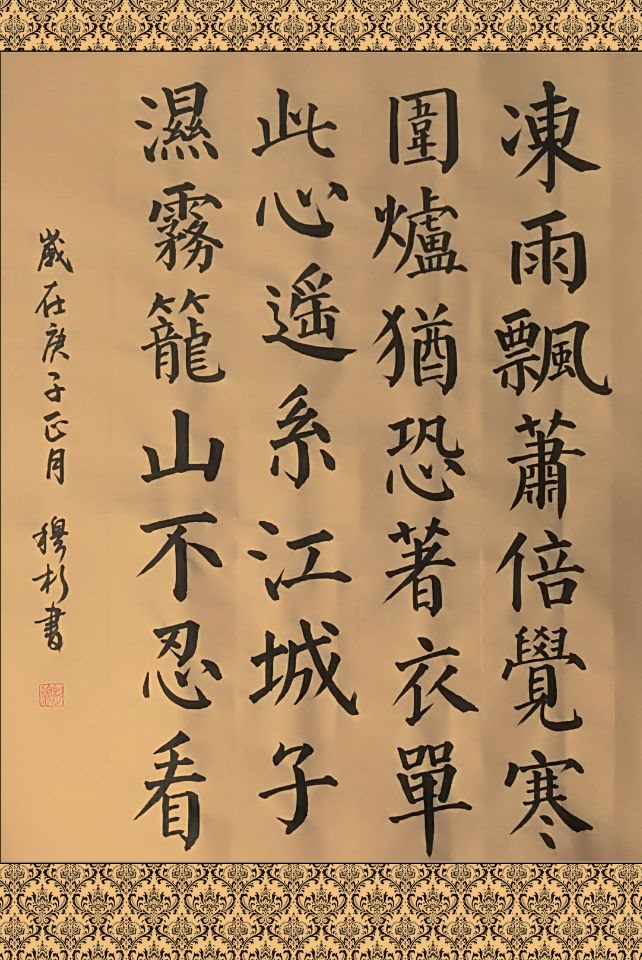 凍雨飄蕭倍覺寒
圍爐猶恐著衣單
此心遥系江城子
濕霧籠山不忍看
歲在庚子正月 穆杉書